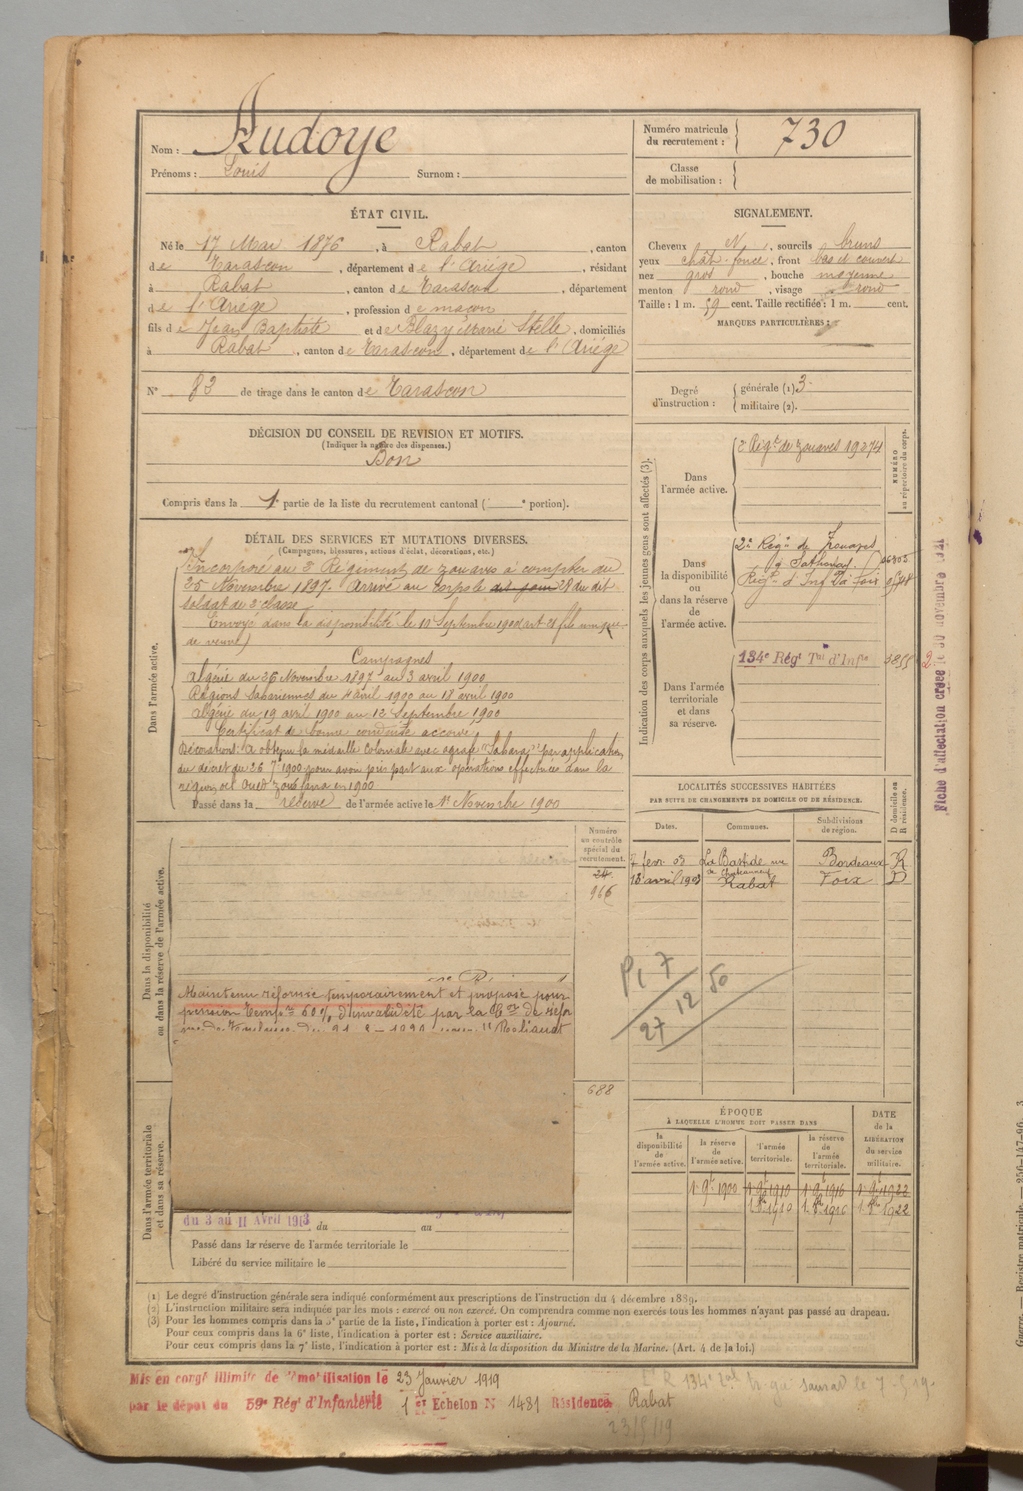 Nom : Audoye
Prénoms : Louis Surnom :
Numéro matricule du recrutement : 730
Classe de mobilisation :
ÉTAT CIVIL.
Né le 17 Mai 1876, à Rabat, canton
de Tarascon, département de l'Ariége, résidant
à Rabat, canton de Tarascon, département
de l'Ariége, profession de maçon
fils de Jean Baptiste et de Blazy Marie Stelle, domiciliés
à Rabat, canton de Tarascon, département de l'Ariége
N° 83 de tirage dans le canton de Tarascon
SIGNALEMENT.
Cheveux N, sourcils bruns
yeux chât-foncé, front bas et couvert
nez gros, bouche moyenne
menton rond, visage rond
Taille : 1 m. 59 cent. Taille rectifiée : 1 m. cent.
MARQUES PARTICULIÈRES :
Degré d'instruction : générale (1) 3
militaire (2).
DÉCISION DU CONSEIL DE REVISION ET MOTIFS.
(Indiquer la nature des dispenses.)
Bon
Compris dans la 1e partie de la liste du recrutement cantonal ( e portion).
DÉTAIL DES SERVICES ET MUTATIONS DIVERSES.
(Campagnes, blessures, actions d'éclat, décorations, etc.)
Dans l'armée active.
Incorporé au 3e Régiment de zouaves à compter du
25 Novembre 1897. Arrivé au corps le dit jour 28 du dit
soldat de 2e classe
Envoyé dans la disponibilité le 10 Septembre 1900 (art 21 fils unique
de veuve)
Campagnes
Algérie du 26 Novembre 1897 au 3 avril 1900
Régions Sahariennes du 4 avril 1900 au 18 avril 1900
Algérie du 19 avril 1900 au 12 Septembre 1900
Certificat de bonne conduite accordé
Décorations. A obtenu la médaille Coloniale avec agrafe "Sahara" par application
du décret du 26 7bre 1900 pour avoir pris part aux opérations effectuées dans la
région de l'Oued Zousfana en 1900
Passé dans la réserve de l'armée active le 1er Novembre 1900
Indication des corps auxquels les jeunes gens sont affectés (3).
NUMÉRO au répertoire du corps.
Dans l'armée active.
3e Régt de zouaves 19274
Dans la disponibilité ou dans la réserve de l'armée active.
2e Régt de Zouaves
à Sathonay
Régt d'Inf de Foix
Dans l'armée territoriale et dans sa réserve.
134e Régt Tal d'Infie
Fiche d'affectation créée le 30 novembre 1921
LOCALITÉS SUCCESSIVES HABITÉES
PAR SUITE DE CHANGEMENTS DE DOMICILE OU DE RÉSIDENCE.
Dates. Communes. Subdivisions de région. D domicile ou R résidence.
7 fevr. 03 La Bastide rue de Chateauneuf Bordeaux R
13 avril 1905 Rabat Foix D
Numéro au contrôle spécial du recrutement.
24
966
688
Dans la disponibilité ou dans la réserve de l'armée active.
Maintenu réformé temporairement et proposé pour
pension tempre 60 % d'invalidité par la Con de réfor
P1 7
27/12 50
Dans l'armée territoriale et dans sa réserve.
du 3 au 11 Avril 1913
du au
Passé dans la réserve de l'armée territoriale le
Libéré du service militaire le
ÉPOQUE
À LAQUELLE L'HOMME DOIT PASSER DANS
la disponibilité de l'armée active. la réserve de l'armée active. l'armée territoriale. la réserve de l'armée territoriale.
DATE de la LIBÉRATION du service militaire.
1er 9bre 1900 1er 9bre 1910 1er 9bre 1916 1er 9bre 1922
1er 8bre 1910 1er 8bre 1916 1er 8bre 1922
(1) Le degré d'instruction générale sera indiqué conformément aux prescriptions de l'instruction du 4 décembre 1889.
(2) L'instruction militaire sera indiquée par les mots : exercé ou non exercé. On comprendra comme non exercés tous les hommes n'ayant pas passé au drapeau.
(3) Pour les hommes compris dans la 5e partie de la liste, l'indication à porter est : Ajourné.
Pour ceux compris dans la 6e liste, l'indication à porter est : Service auxiliaire.
Pour ceux compris dans la 7e liste, l'indication à porter est : Mis à la disposition du Ministre de la Marine. (Art. 4 de la loi.)
Mis en congé illimité de démobilisation le 23 Janvier 1919
par le dépôt du 59e Régt d'Infanterie 1er Echelon N° 1481 Résidence Rabat
23/5/19
Guerre. — Registre matricule. — 256-147-96. 3